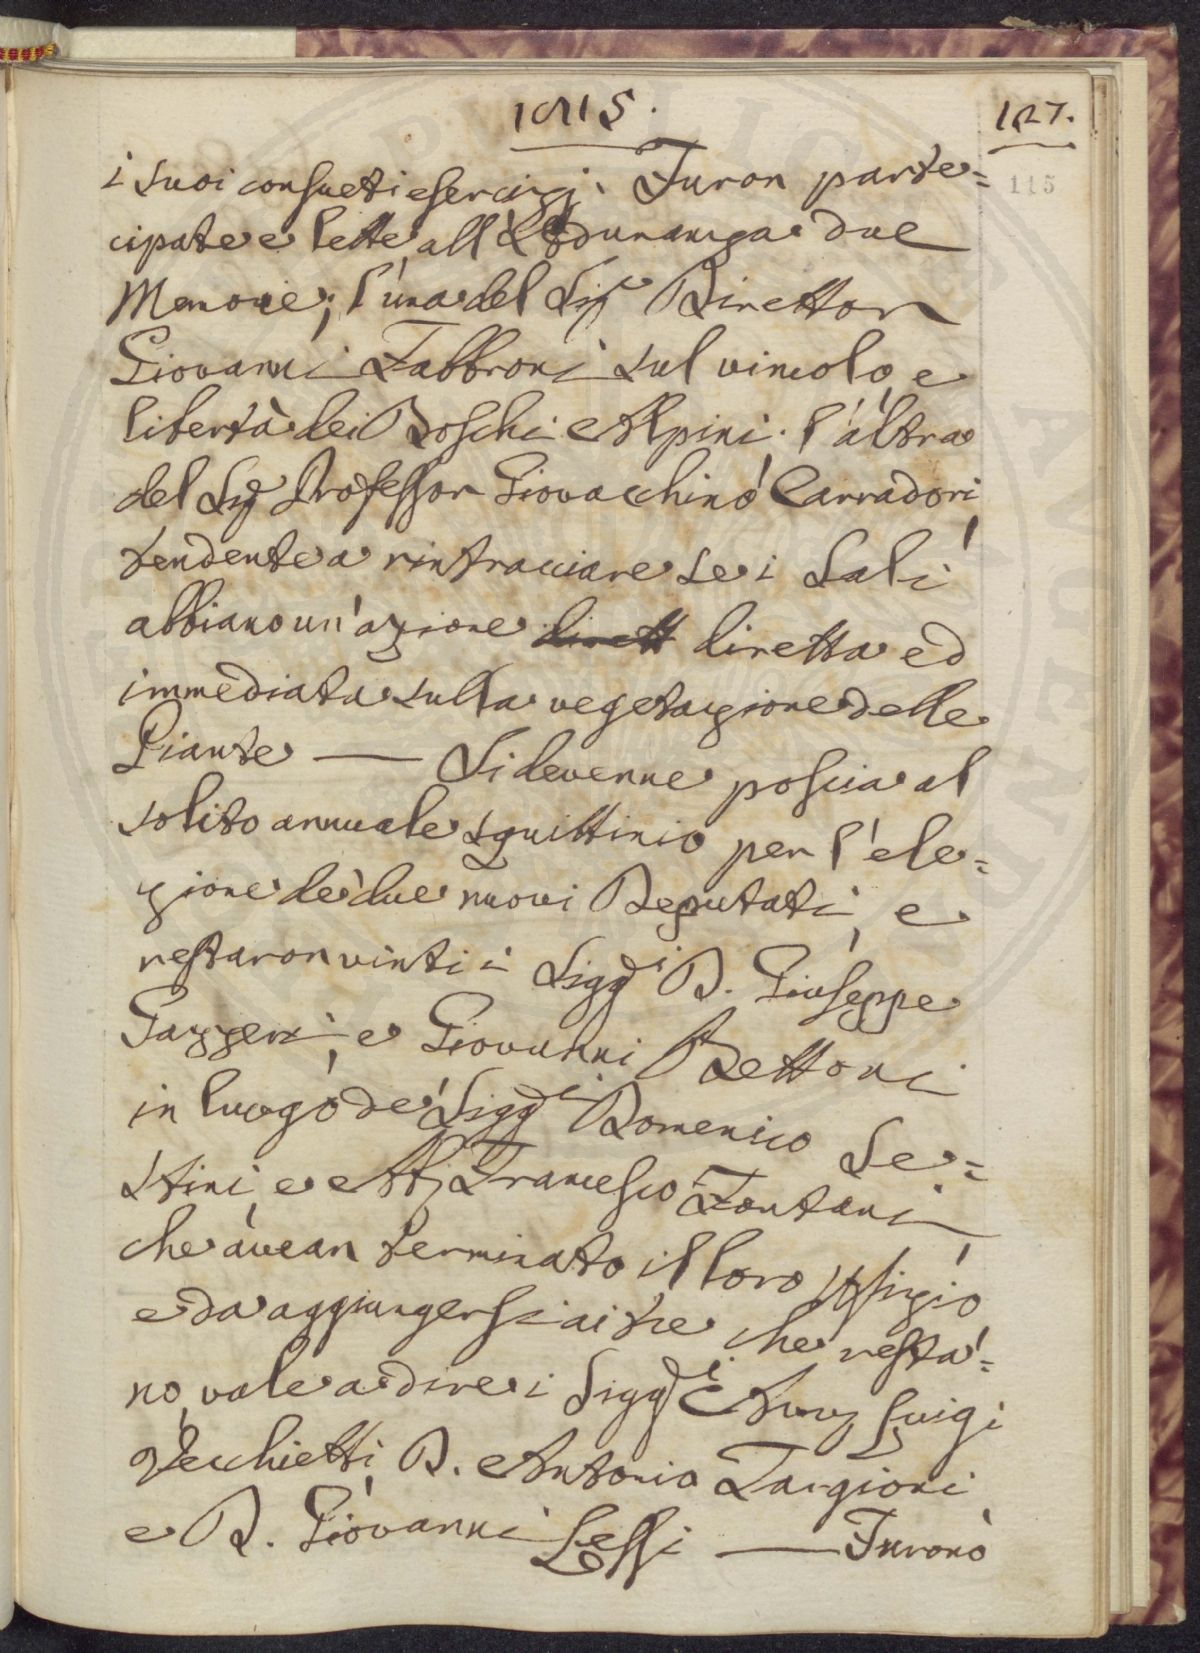 1815.
127.
115
i suoi consueti esercizj. Furon parte=
cipate e lette all'Adunanza due
Memorie; l'una del Sigr Direttor
Giovanni Fabbroni sul vincolo, e
libertà dei Boschi Alpini; l'altra
del Sigr Professor Giovacchino Carradori,
tendente a rintracciare se i Sali
abbiano un'azione dirett diretta ed
immediata sulla vegetazione delle
Piante —— Si devenne poscia al
solito annuale squittinio per l'ele=
zione de' due nuovi Deputati, e
restaron vinti i Siggri D. Giuseppe
Gazzeri, e Giovanni Bettoni
in luogo de' Siggri Domenico Se=
stini, e Ab. Francesco Fontani
che avean terminato il loro Ufizio,
e da aggiungersi ai tre che resta=
no, vale a dire i Siggri Avv. Luigi
Vecchietti, D. Antonio Targioni,
e D. Giovanni Lessi —— Furono